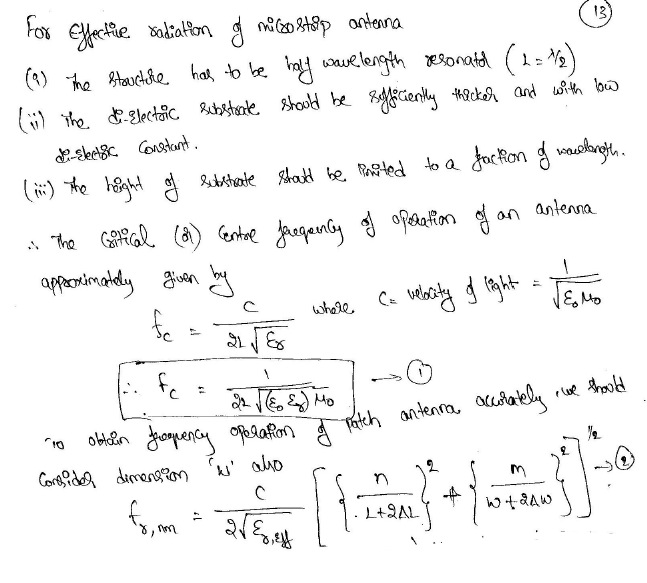 13
For Effective radiation of microstrip antenna
(i) The structure has to be half wavelength resonator (L = λ/2)
(ii) The di-electric substrate should be sufficiently thicker and with low
di-electric constant.
(iii) The height of substrate should be limited to a fraction of wavelength.
∴ The critical (or) centre frequency of operation of an antenna
approximately given by
f_c = C / (2L √ε_r) where C = velocity of light = 1 / √(ε_0 μ_0)
∴ f_c = 1 / (2L √((ε_0 ε_r) μ_0)) → ①
To obtain frequency operation of patch antenna accurately, we should
consider dimension 'W' also
f_r,nm = C / (2√ε_r,eff) [ { n / (L+2ΔL) }² + { m / (W+2ΔW) }² ]^1/2 → ②